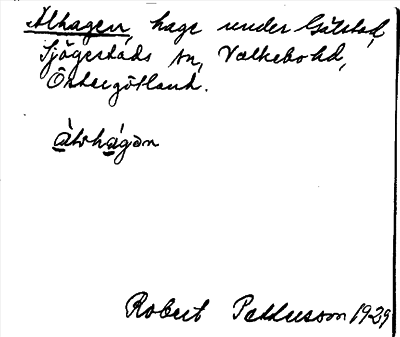 Alhagen, hage under Götstad,
Sjögestads sn, Valkebo hd,
Östergötland.
Robert Pettersson 1929